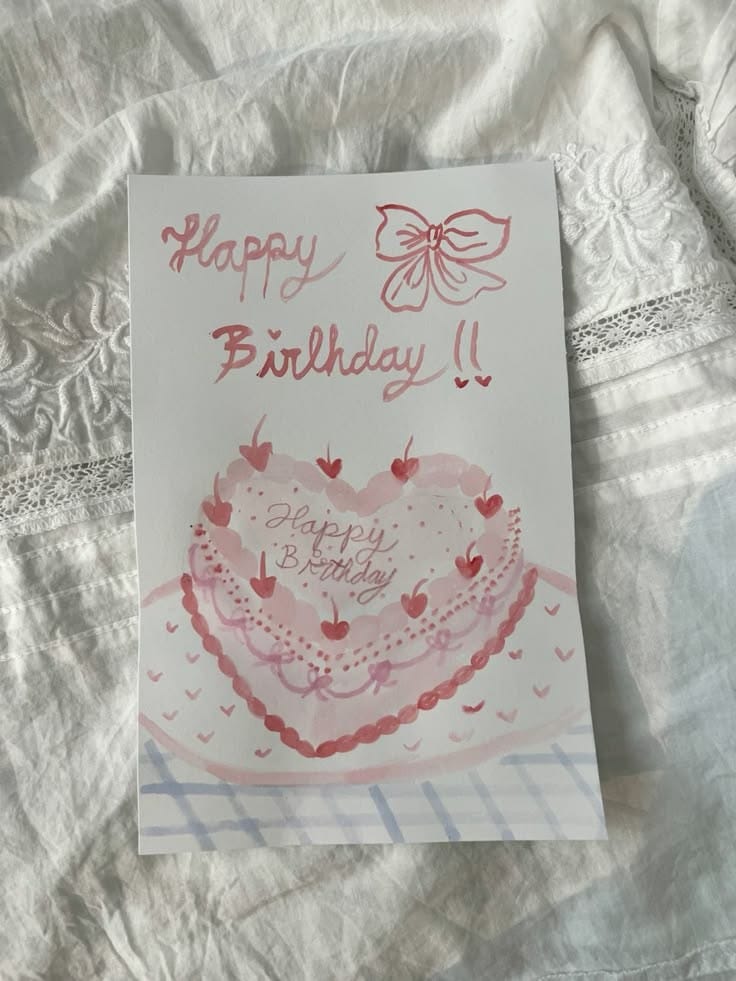 Happy
Birthday !!
Happy
Birthday